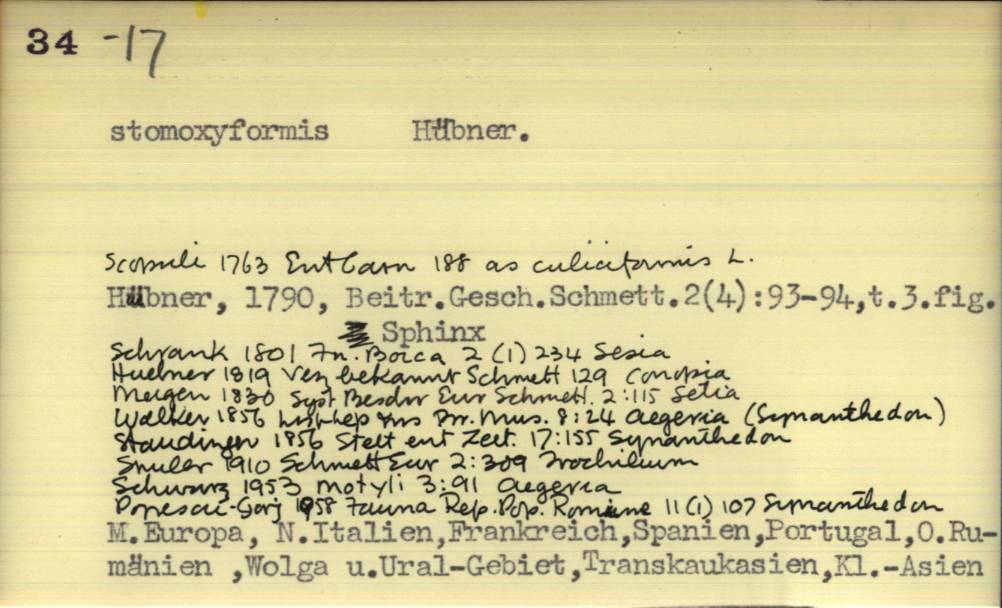 34 -17
stomoxyformis Hübner.
Scopuli 1763 Ent Carn 188 as culiciformis L.
Hübner, 1790, Beitr.Gesch.Schmett.2(4):93-94,t.3.fig.
Sphinx
Schrank 1801 Fn. Boica 2 (1) 234 Sesia
Huebner 1819 Verz bekannt Schmett 129 Conopia
Meigen 1830 Syst Beschr Eur Schmett. 2:115 Setia
Walker 1856 List Lep Ins Br. Mus. 8:24 Aegeria (Synanthedon)
Staudinger 1856 Stett ent Zeit. 17:155 Synanthedon
Snuler 1910 Schmett Eur 2:309 Trochilium
Schwarz 1953 Motyli 3:91 Aegeria
Popescu-Gorj 1958 Fauna Rep. Pop. Romine 11(1) 107 Synanthedon
M.Europa, N.Italien,Frankreich,Spanien,Portugal,O.Ru-
mänien ,Wolga u.Ural-Gebiet,Transkaukasien,Kl.-Asien